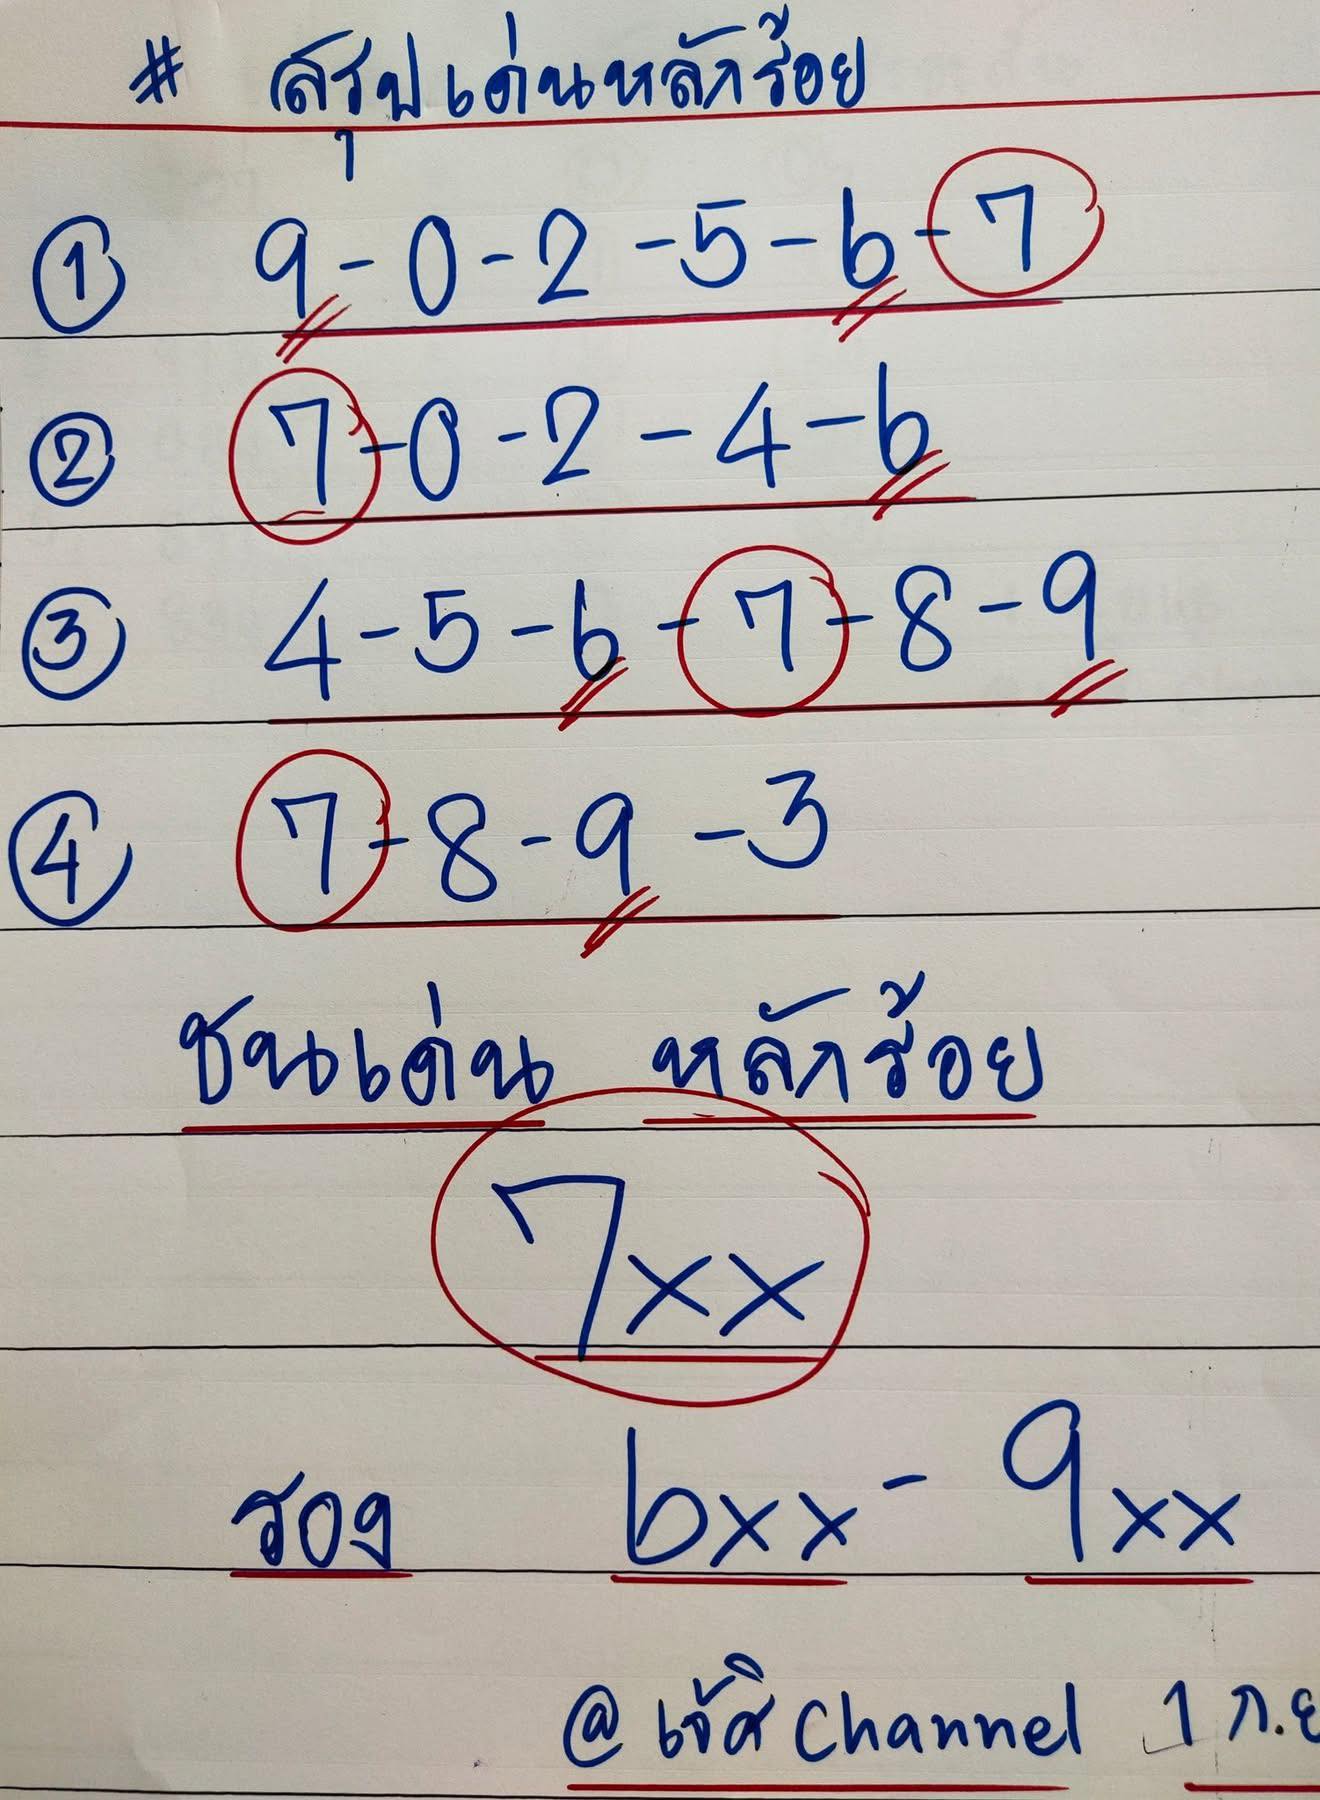 # สรุปเด่นหลักร้อย
① 9-0-2-5-6-7
② 7-0-2-4-6
③ 4-5-6-7-8-9
④ 7-8-9-3
ชนเด่น หลักร้อย
7xx
รอง 6xx - 9xx
@เจ๊ศิ Channel 1 ก.ย